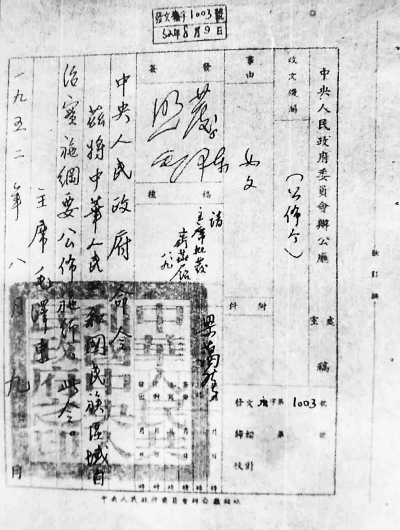 1003號
52年8月9日
中央人民政府委員會辦公廳
處
室
稿
收文機關
(公佈令)
事由
如文
附件
發文
字第1003號
歸檔
校對
簽發
照發
毛澤東
核稿
請
主席批發
中央人民政府命令
茲將中華人民共和國民族區域自
治實施綱要公佈施行。此令。
主席毛澤東
一九五二年八月九日
中央人民政府委員會辦公廳